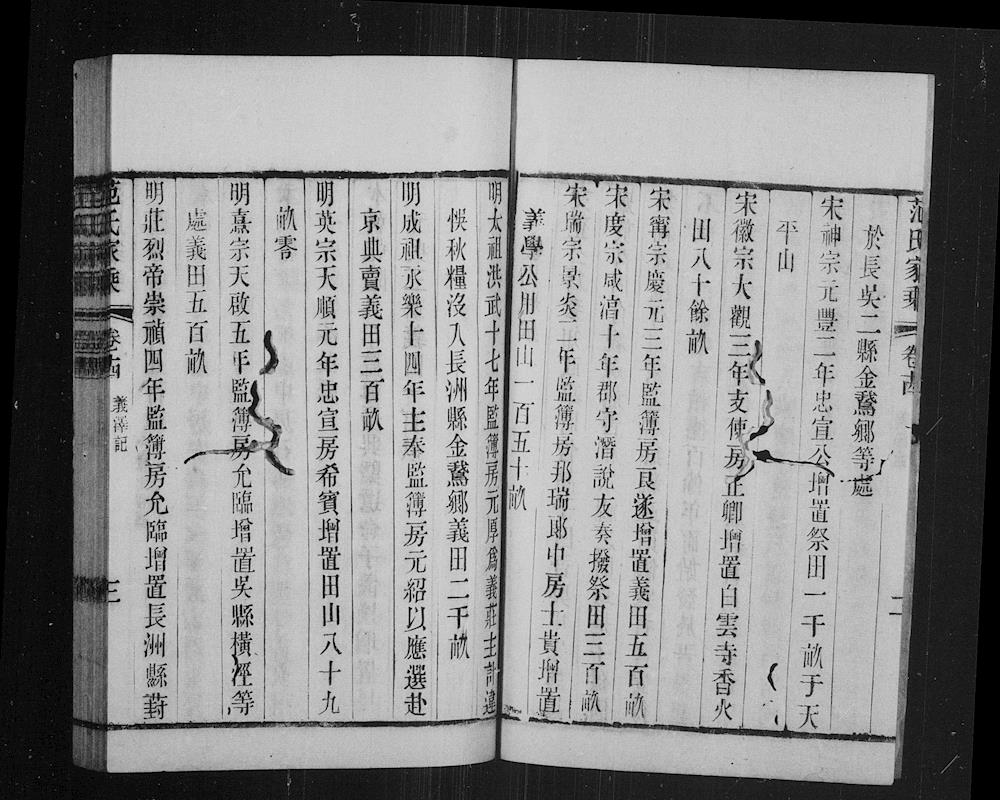 范氏家乘 卷十四 二
於長吳二縣金鵞鄉等處
宋神宗元豐二年忠宣公增置祭田一千畝于天
平山
宋徽宗大觀三年支使房正卿增置白雲寺香火
田八十餘畝
宋甯宗慶元三年監簿房良遂增置義田五百畝
宋度宗咸淳十年郡守潛說友奏撥祭田三百畝
宋端宗景炎二年監簿房邦瑞郎中房士貴增置
義學公用田山一百五十畝
明太祖洪武十七年監簿房元厚爲義莊主計違
悞秋糧沒入長洲縣金鵞鄉義田二千畝
明成祖永樂十四年主奉監簿房元紹以應選赴
京典賣義田三百畝
明英宗天順元年忠宣房希賓增置田山八十九
畝零
明熹宗天啟五年監簿房允臨增置吳縣橫涇等
處義田五百畝
明莊烈帝崇禎四年監簿房允臨增置長洲縣葑
范氏家乘 卷十四 義澤記 三